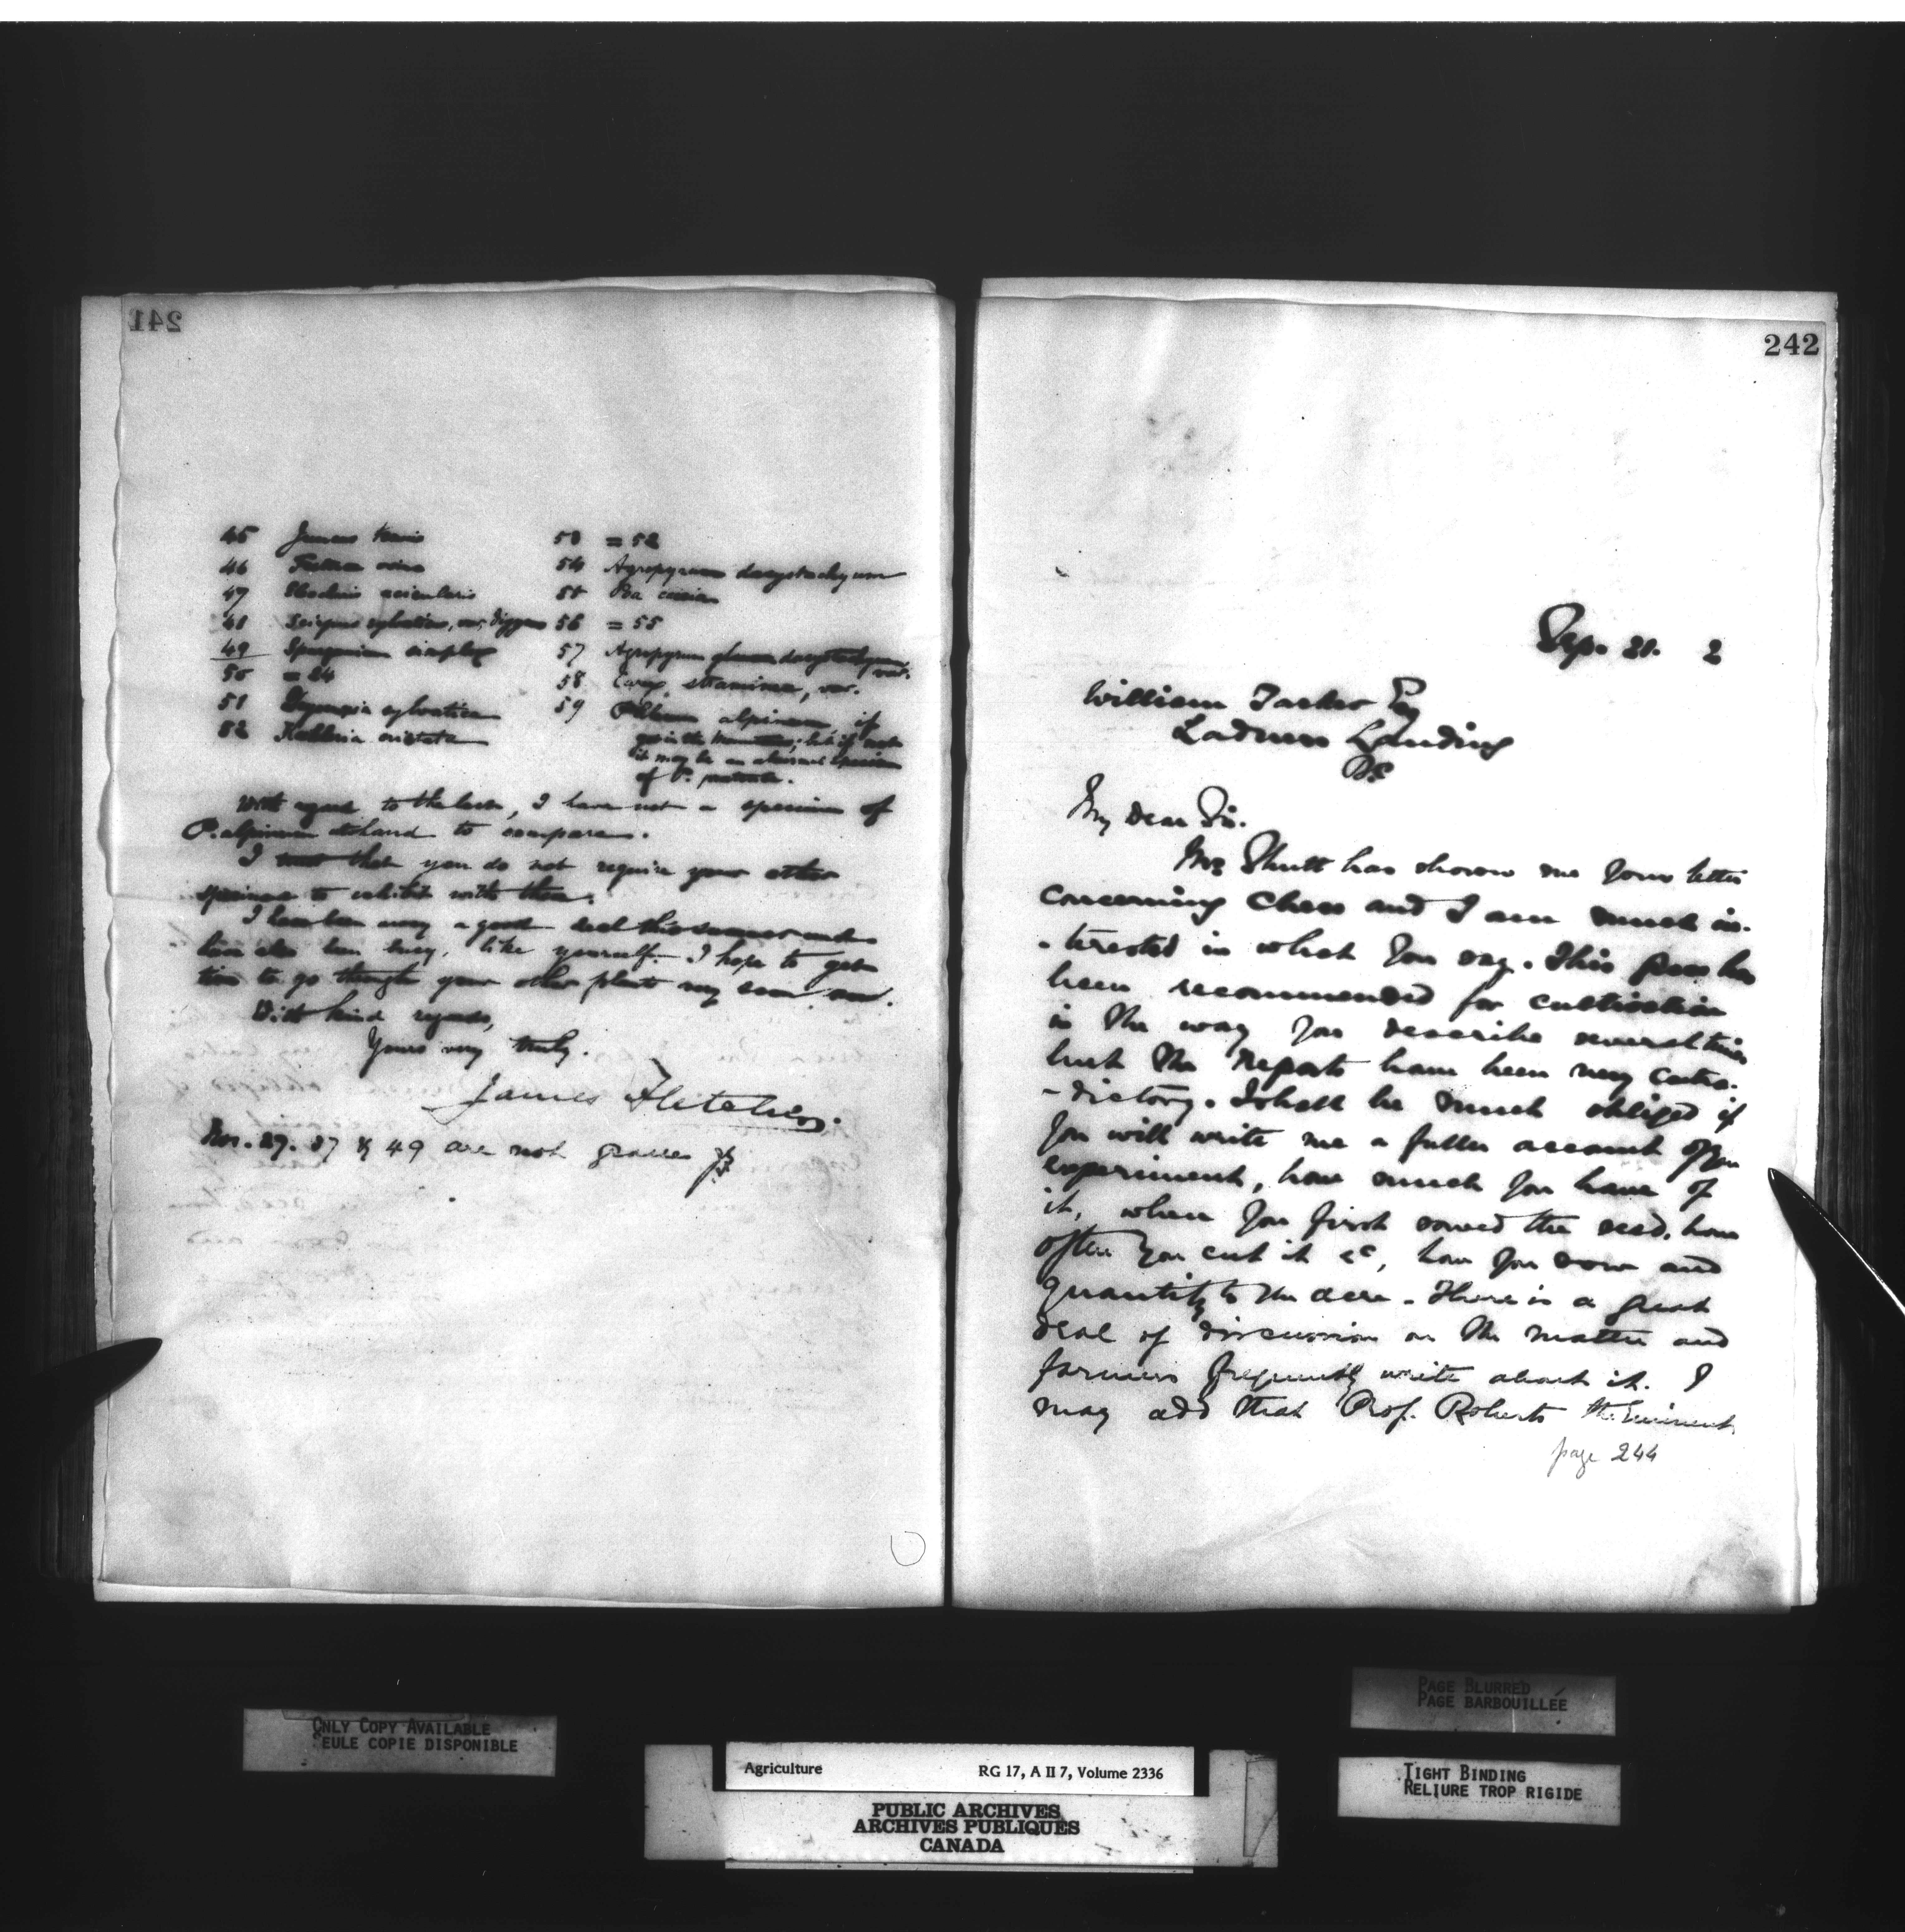 241
45 Juncus tenuis
46 Festuca ovina
47 Eleocharis acicularis
48 Scirpus sylvaticus, var. digynus
49 Sparganium simplex
50 = 24
51 sylvatica
52 Koeleria cristata
53 = 52
54 Agropyrum dasystachyum
55 Poa caesia
56 = 55
57 Agropyrum dasystachyum, var.
58 Carex straminea, var.
59 Phleum alpinum if
it may be an specimen
of P. pratense.
With regard to the last, I have not a specimen of
P. alpinum at hand to compare.
I trust that you do not require your other
specimens to exhibit with these.
I have been away a good deal this summer and
have also been busy, like yourself. I hope to get
time to go through your other plants very soon now.
With kind regards,
Yours very truly.
James Fletcher.
Nos. 29. 37 & 49 are not grasses JF
242
Sep. 21. 2
William Esq
Ladners Landing
BC
My dear Sir.
Mr Shutt has shown me your letter
concerning Chess and I am much in-
-terested in what you say. This grass has
been recommended for cultivation
in the way you describe several times
but the reports have been very contra-
-dictory. I shall be much obliged if
you will write me a fuller account of your
experiment, how much you have of
it, when you first sowed the seed, how
often you cut it &c, how you sow and
quantity to the acre. There is a great
deal of discussion on the matter and
farmers frequently write about it. I
may add that Prof. Roberts the eminent
page 244
ONLY COPY AVAILABLE
SEULE COPIE DISPONIBLE
PAGE BLURRED
PAGE BARBOUILLÉE
TIGHT BINDING
RELIURE TROP RIGIDE
Agriculture RG 17, A II 7, Volume 2336
PUBLIC ARCHIVES
ARCHIVES PUBLIQUES
CANADA